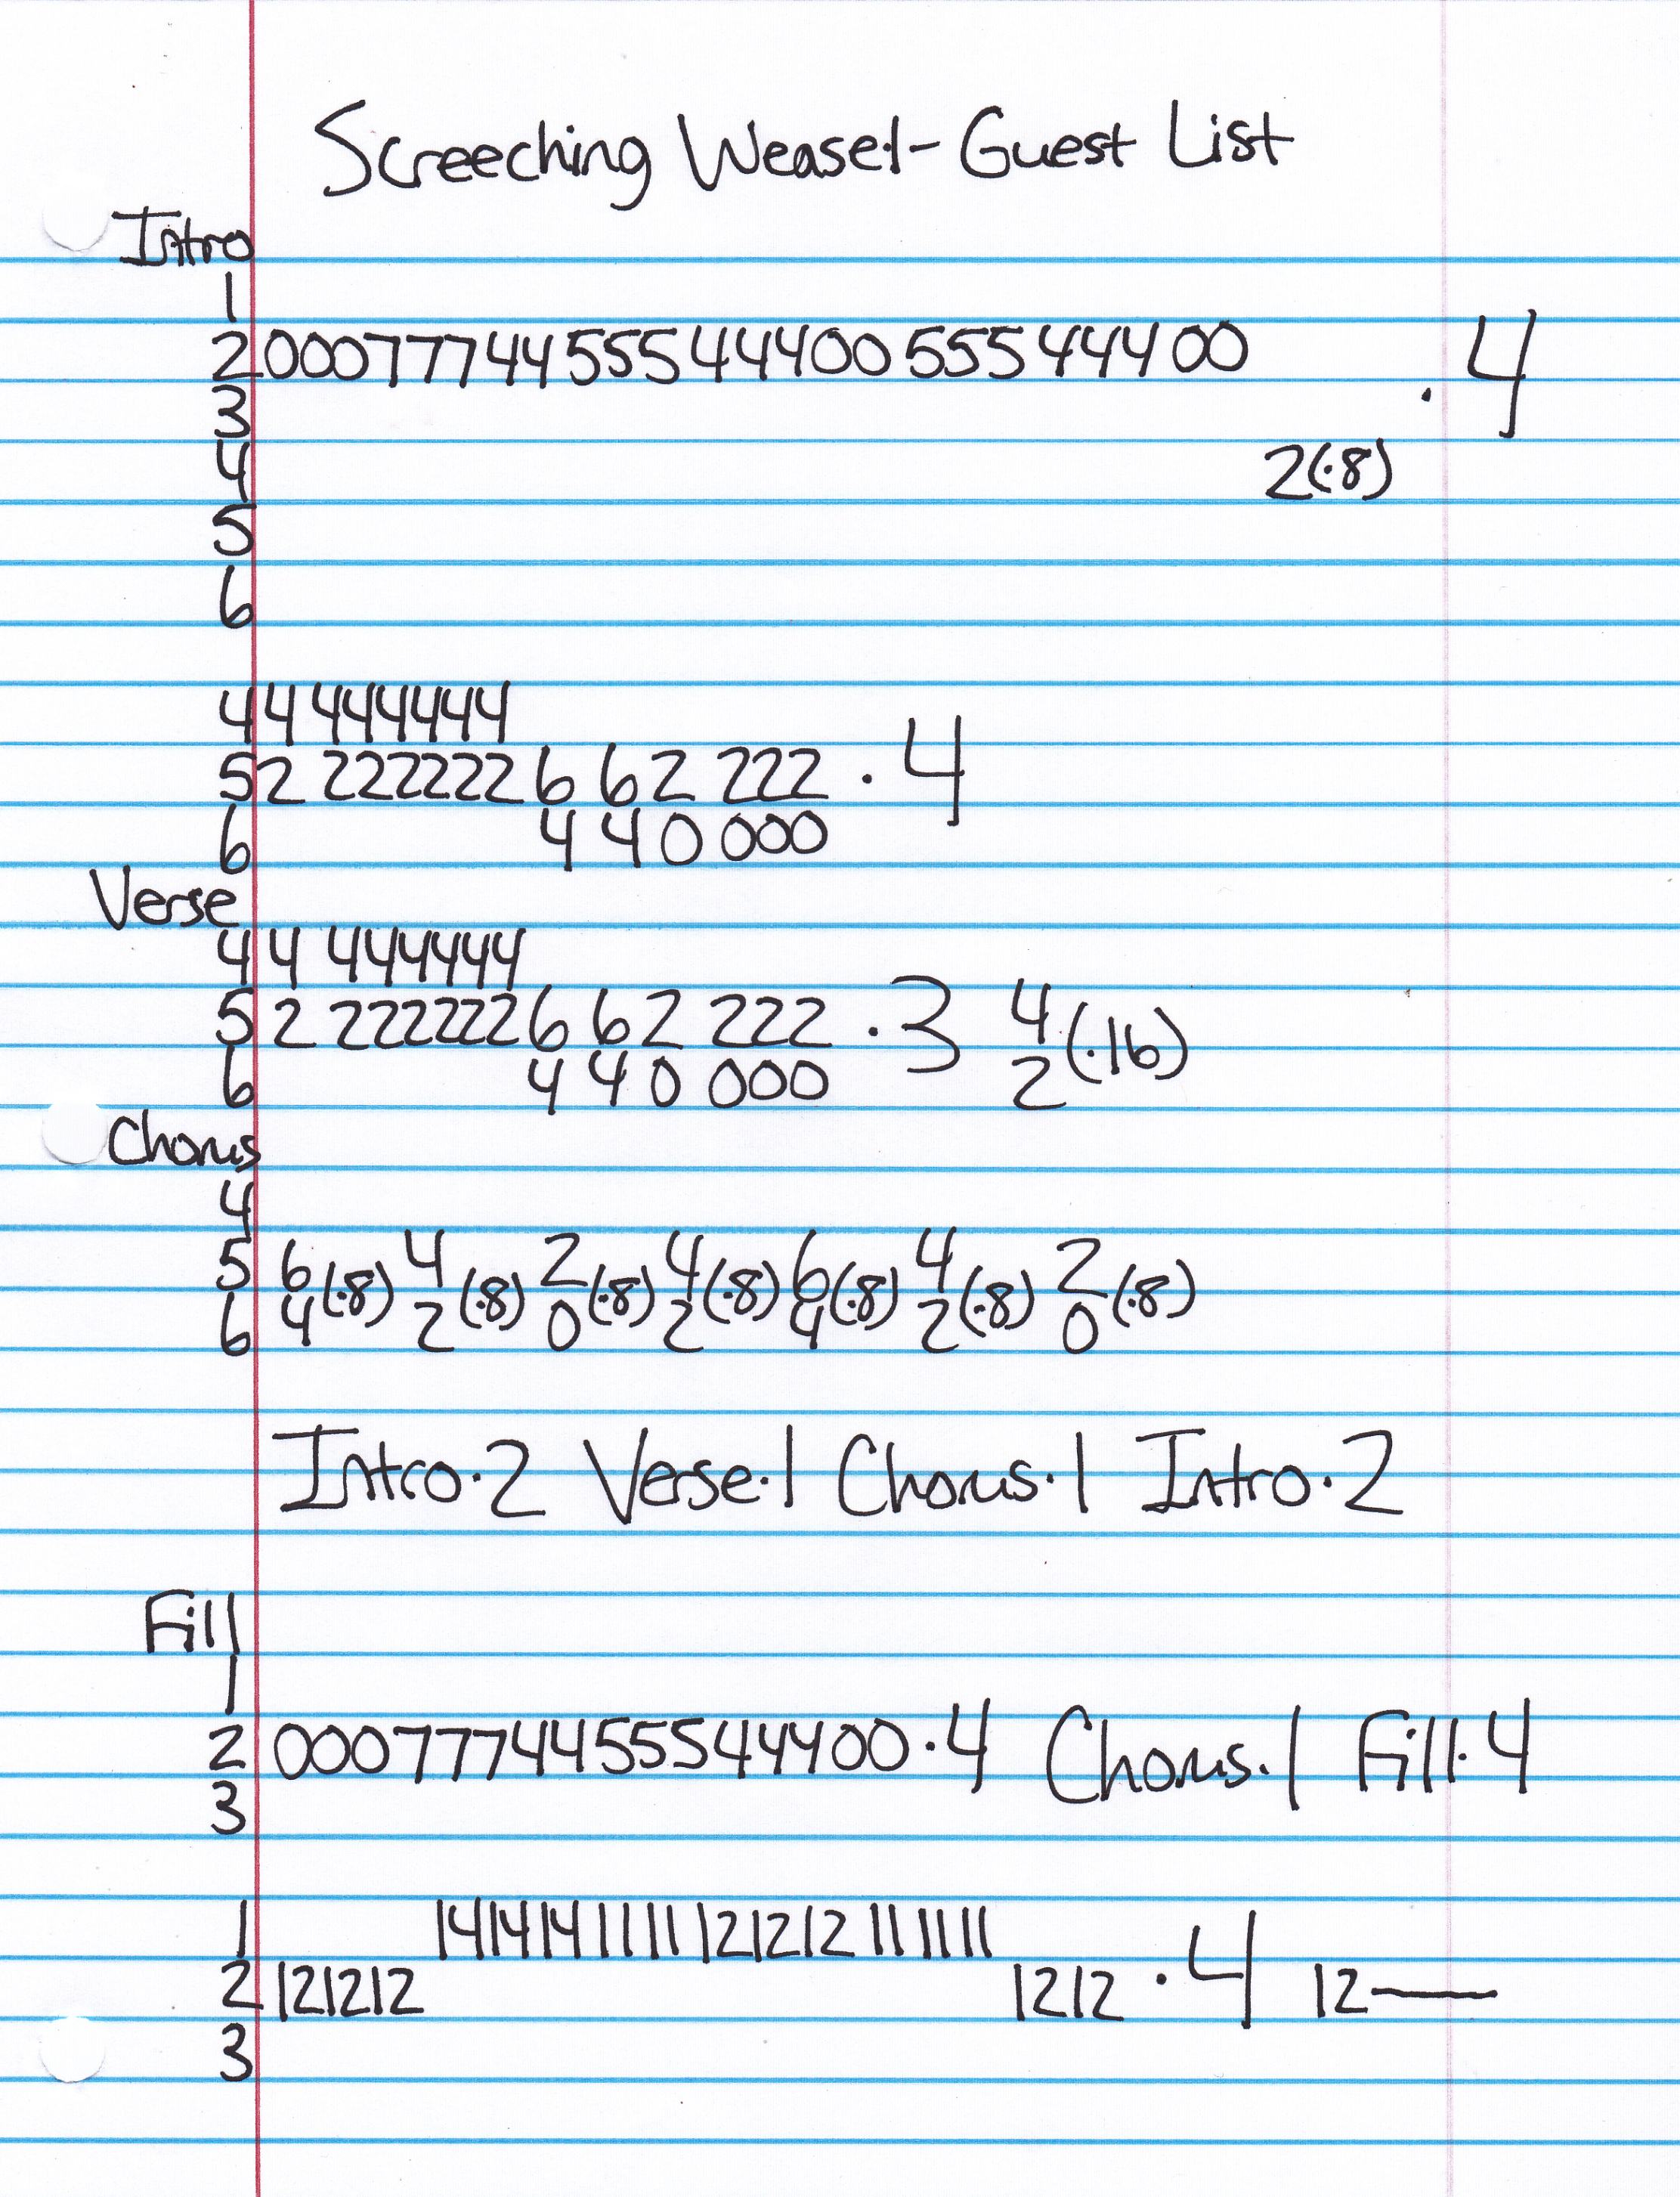 Screeching Weasel - Guest List
Intro
1
2 000777445554440055544400 · 4
3
4 2(·8)
5
6
4 4 444444
5 2 222222 6 6 2 222 · 4
6 4 4 0 000
Verse
4 4 444444
5 2 222222 6 6 2 222 · 3 4
6 4 4 0 000 2 (·16)
Chorus
4
5 6(·8) 4(·8) 2(·8) 4(·8) 6(·8) 4(·8) 2(·8)
6 4 2 0 2 4 2 0
Intro·2 Verse·1 Chorus·1 Intro·2
Fill
1
2 0007774455544400·4 Chorus·1 Fill·4
3
1 141414 111111 121212 111111
2 121212 1212 ·4 12—
3